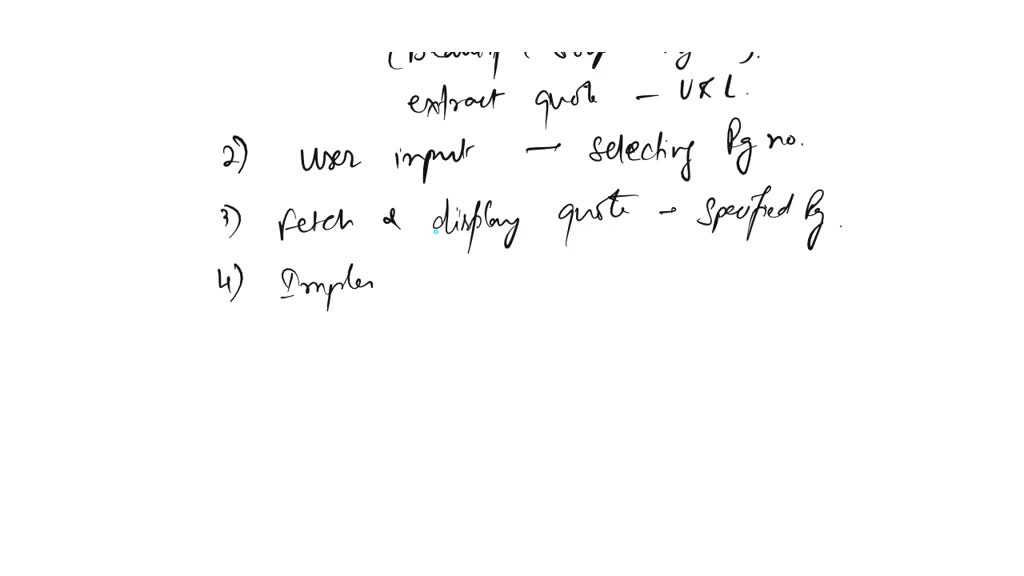 extract quote - URL.
2) user input - selecting Pg no.
3) Fetch & display quote - specified Pg.
4) Implem